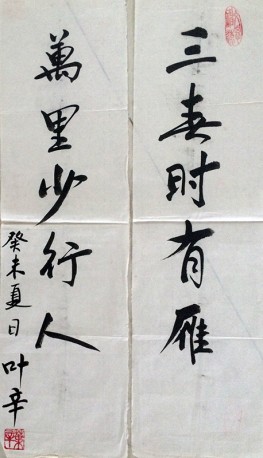 三春时有雁
萬里少行人
癸未夏日 叶辛